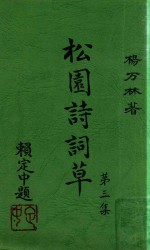 楊万林著
松園詩詞草
第三集
賴定中題